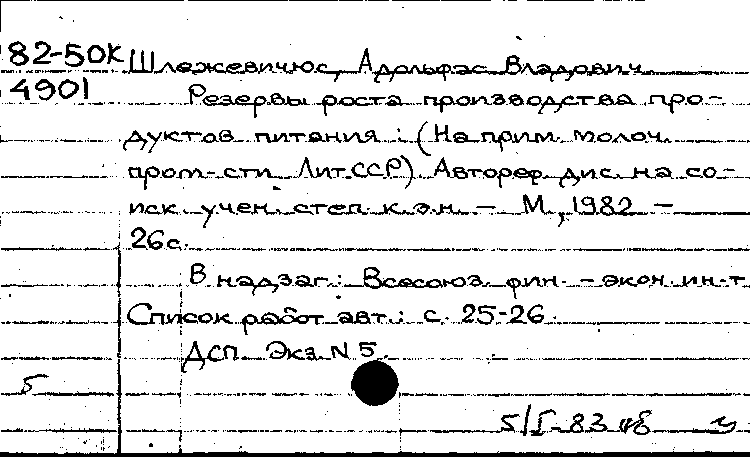 82-50К Шлежевичюс, Адольфас Владович
4901 Резервы роста производства про-
дуктов питания: (На прим. молоч.
пром-сти ЛитССР). Автореф. дис. на со-
иск. учен. степ. к.э.н. – М., 1982 –
26с.
В надзаг.: Всесоюз. фин.-экон. ин-т
Список работ авт.: с. 25-26.
ДСП. Экз. N 5.
5/I-83